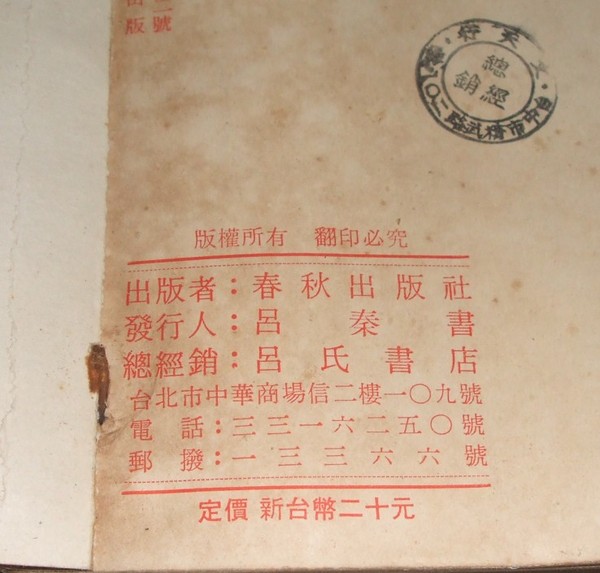 二號
出版
版權所有 翻印必究
出版者：春秋出版社
發行人：呂秦書
總經銷：呂氏書店
台北市中華商場信二樓一〇九號
電話：三三一六二五〇號
郵撥：一三三六六號
定價 新台幣二十元
總經銷